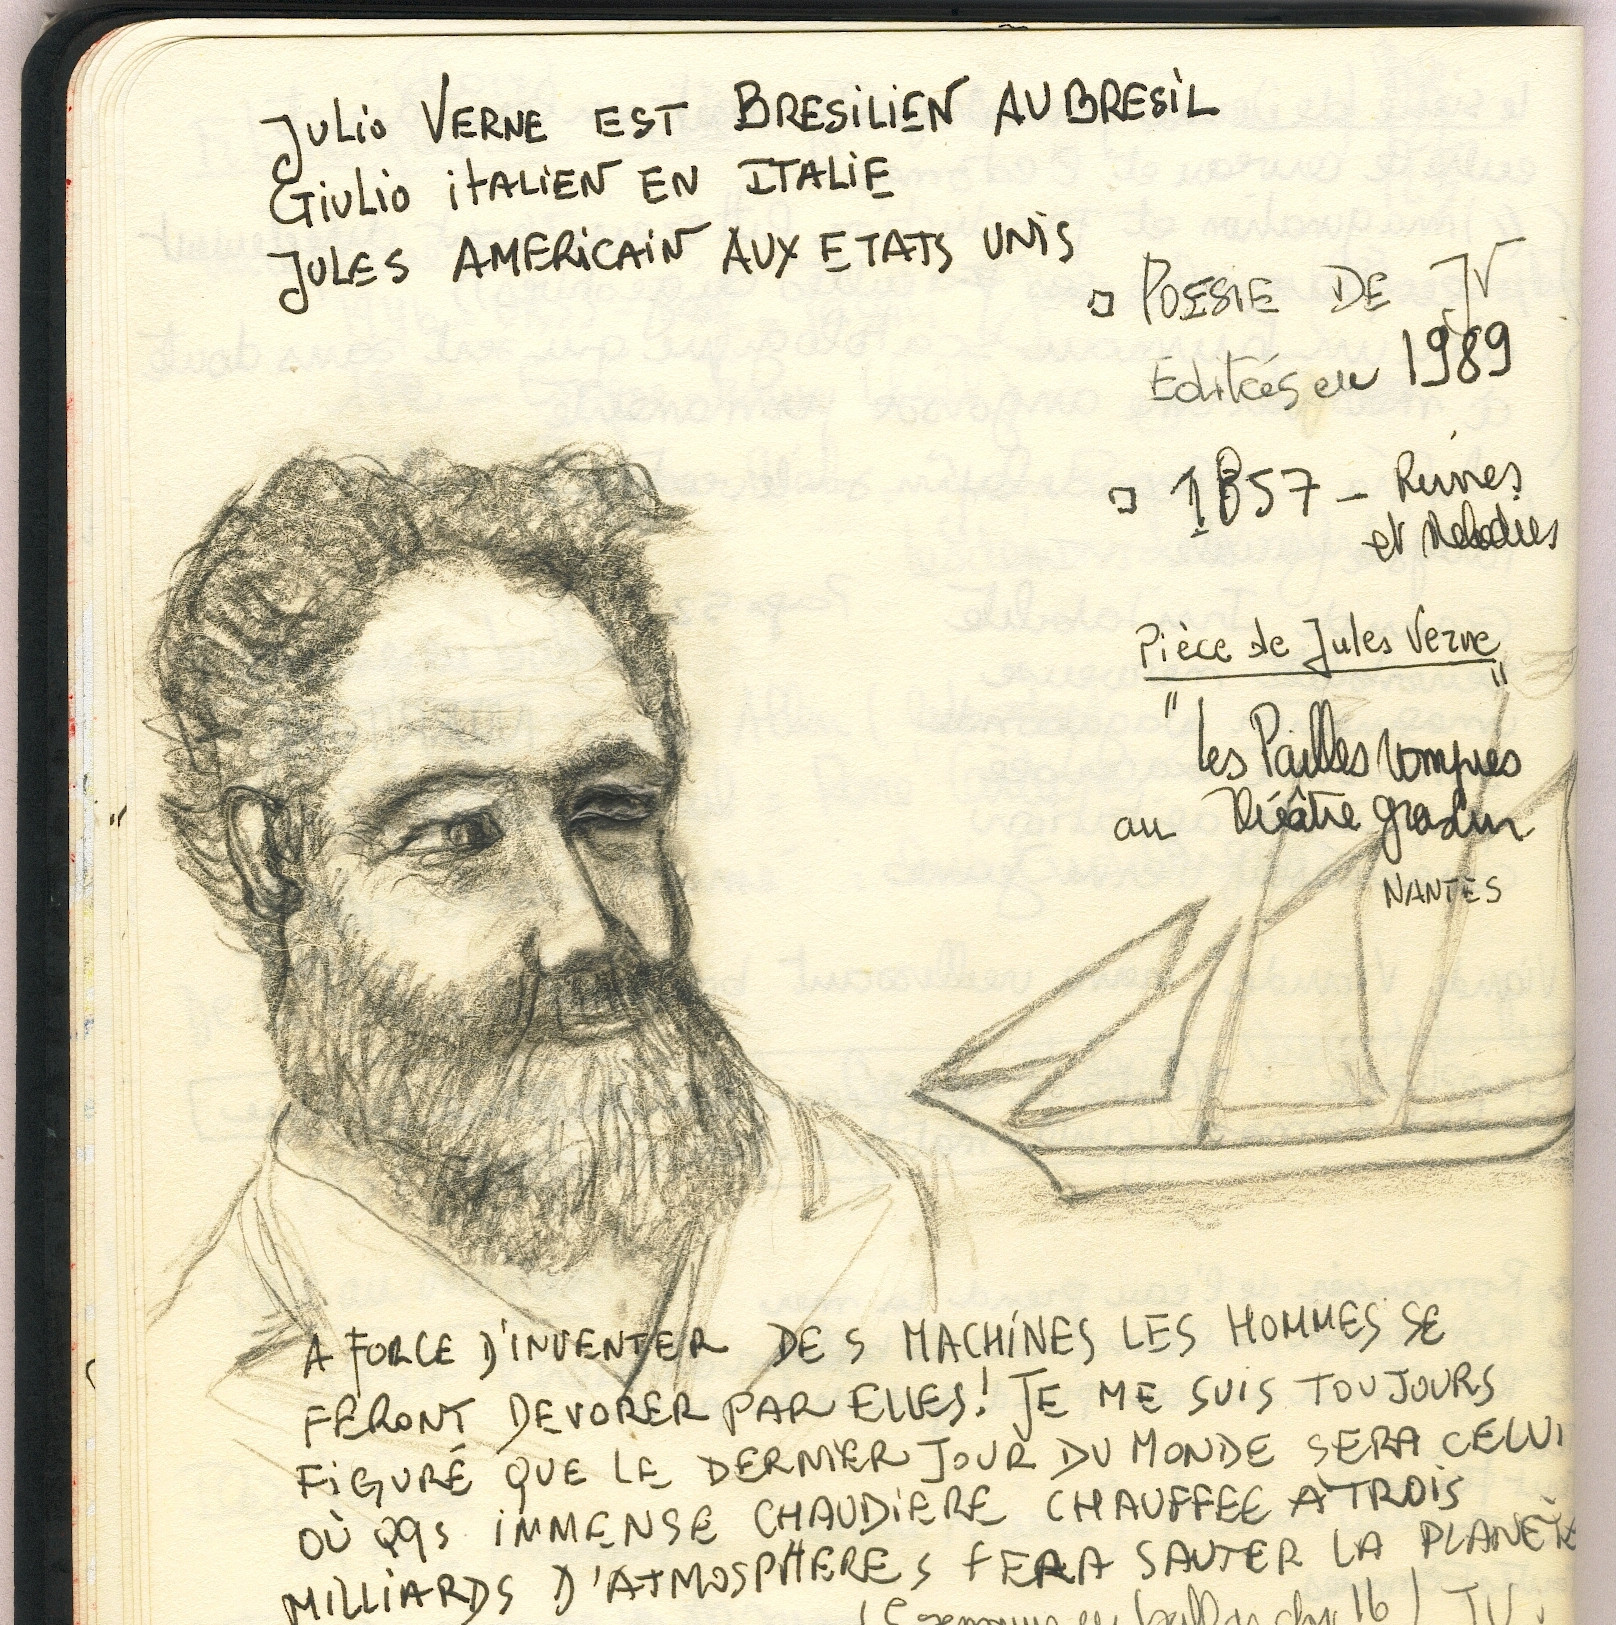 JULIO VERNE EST BRESILIEN AU BRESIL
GIULIO ITALIEN EN ITALIE
JULES AMERICAIN AUX ETATS UNIS
POESIE DE JV
Editées en 1989
1857 - Ruines
et Melodies
Pièce de Jules Verne
"Les Pailles rompues"
au Théâtre Graslin
NANTES
A FORCE D'INVENTER DES MACHINES LES HOMMES SE
FERONT DEVORER PAR ELLES! JE ME SUIS TOUJOURS
FIGURÉ QUE LE DERNIER JOUR DU MONDE SERA CELUI
OÙ QQS IMMENSE CHAUDIERE CHAUFFEE A TROIS
MILLIARDS D'ATMOSPHERES FERA SAUTER LA PLANÈTE
16) JV.